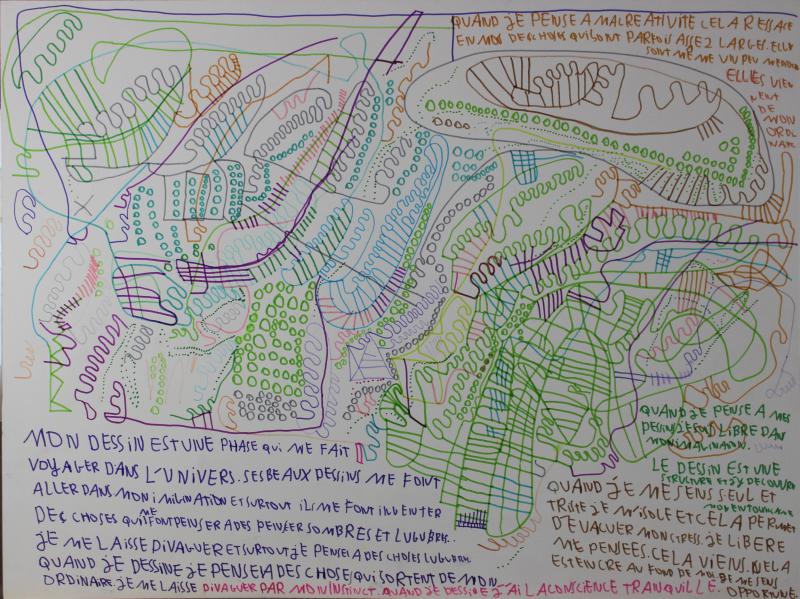 QUAND JE PENSE A MA CREATIVITE CELA RESSASE
EN MOI DES CHOSES QUI SONT PARFOIS ASSEZ LARGES. ELLE
SONT MEME UN PEU
ELLES VIEN
NENT
DE
MON
ORDI
NAIR
QUAND JE PENSE A MES
DESSIN JE SUI LIBRE DAN
MON IMAGINATION.
LE DESSIN EST UNE
STRUCTURE ET J'Y DECOUVRE
MON ENTOURAGE
MON DESSIN EST UNE PHASE QUI ME FAIT
VOYAGER DANS L'UNIVERS. SES BEAUX DESSINS ME FONT
ALLER DANS MON IMILINATION ET SURTOUT ILS ME FONT INVENTER
DES CHOSES QUI ME FONT PENSER A DES PENSER SOMBRES ET LUGUBRES..
JE ME LAISSE DIVAGUER ET SURTOUT JE PENSE A DES CHOSES LUGUBRE.
QUAND JE DESSINE JE PENSE A DES CHOSES QUI SORTENT DE MON
ORDINAIRE. JE ME LAISSE DIVAGUER PAR MON INSTINCT. QUAND JE DESSINE J'AI LA CONSCIENCE TRANQUILLE.
QUAND JE ME SENS SEUL ET
TRISTE JE M'ISOLE ET CELA PERMET
D'EVACUER MON STRESS. JE LIBERE
ME PENSEES. CELA VIENS.
EST ENCRE AU FOND DE MOI. JE ME SENS
OPPORTUNE.